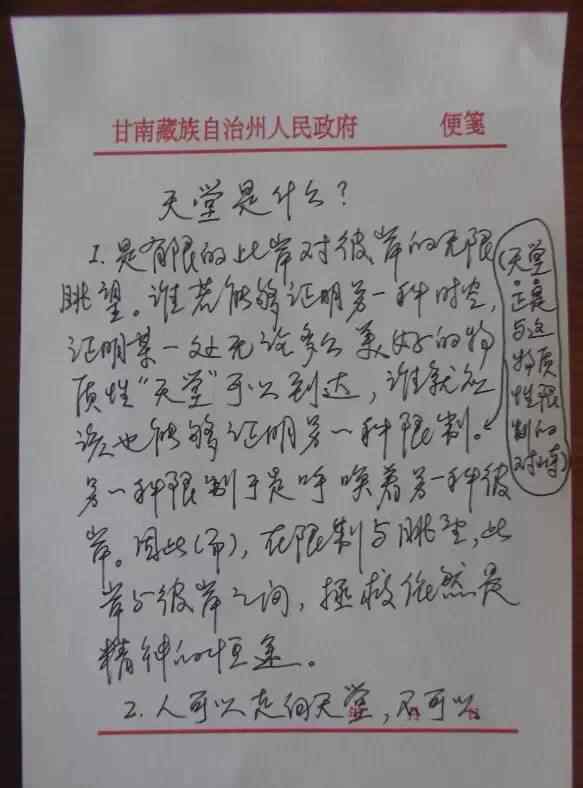 甘南藏族自治州人民政府 便笺
天堂是什么？
1. 是有限的此岸对彼岸的无限
眺望。谁若能够证明另一种时空,
证明某一处无论多么美好的物
质性“天堂”可以到达，谁就应
该也能够证明另一种限制。
(天堂正是与这物质性限制的对峙)
另一种限制于是呼唤着另一种彼
岸。因此(而)，在限制与眺望、此
岸与彼岸之间，拯救依然是
精神的恒途。
2. 人可以走向天堂，不可以